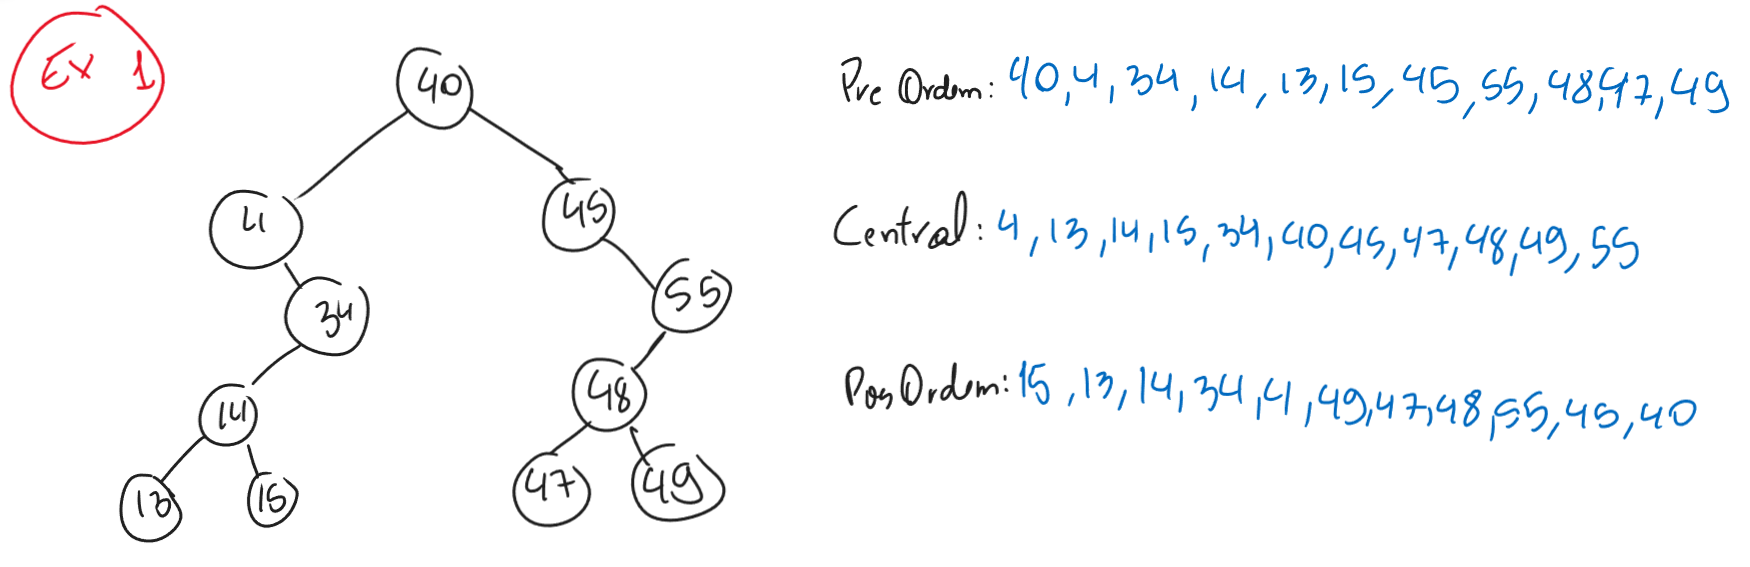 Ex 1
40
4
45
34
55
14
48
13
15
47
49
Pre Ordem: 40,4,34,14,13,15,45,55,48,47,49
Central: 4,13,14,15,34,40,45,47,48,49,55
Pos Ordem: 15,13,14,34,4,49,47,48,55,45,40